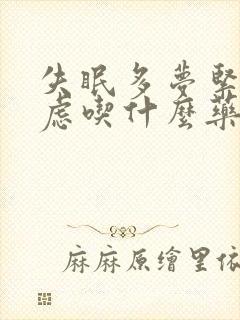 失眠多夢緊
慮喫什麼藥
麻麻原繪里依